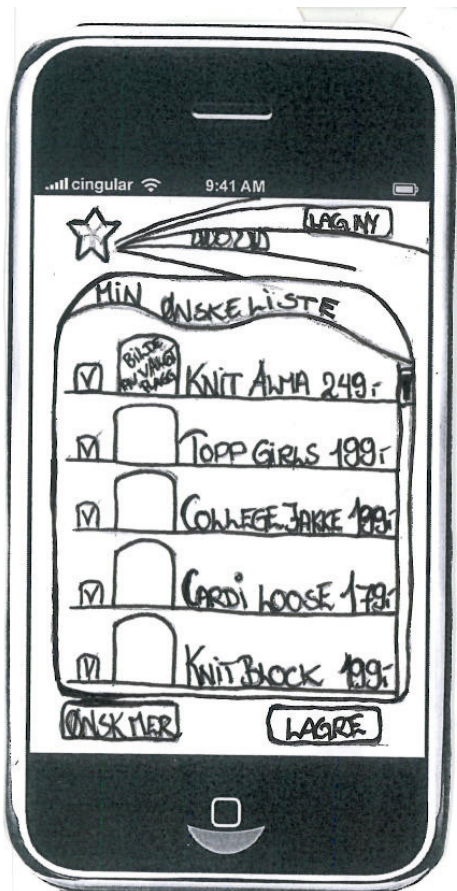 cingular 9:41 AM
LAG NY
MIN ØNSKELISTE
BILDE
AV VALGT
PLAGG
KNIT ALMA 249:-
TOPP GIRLS 199:-
COLLEGE JAKKE 199:-
CARDI LOOSE 179:-
KNIT BLOCK 199:-
ØNSK MER
LAGRE